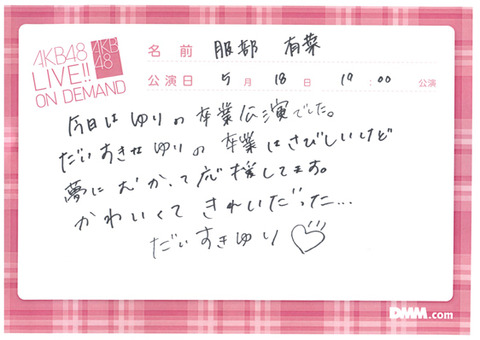 AKB48
LIVE!!
ON DEMAND
AKB
48
名前 服部 有菜
公演日 5月18日 19:00 公演
今日はゆりの卒業公演でした。
だいすきなゆりの卒業はさびしいけど
夢にむかって応援してます。
かわいくてきれいだった…
だいすきゆり♡
DMM.com